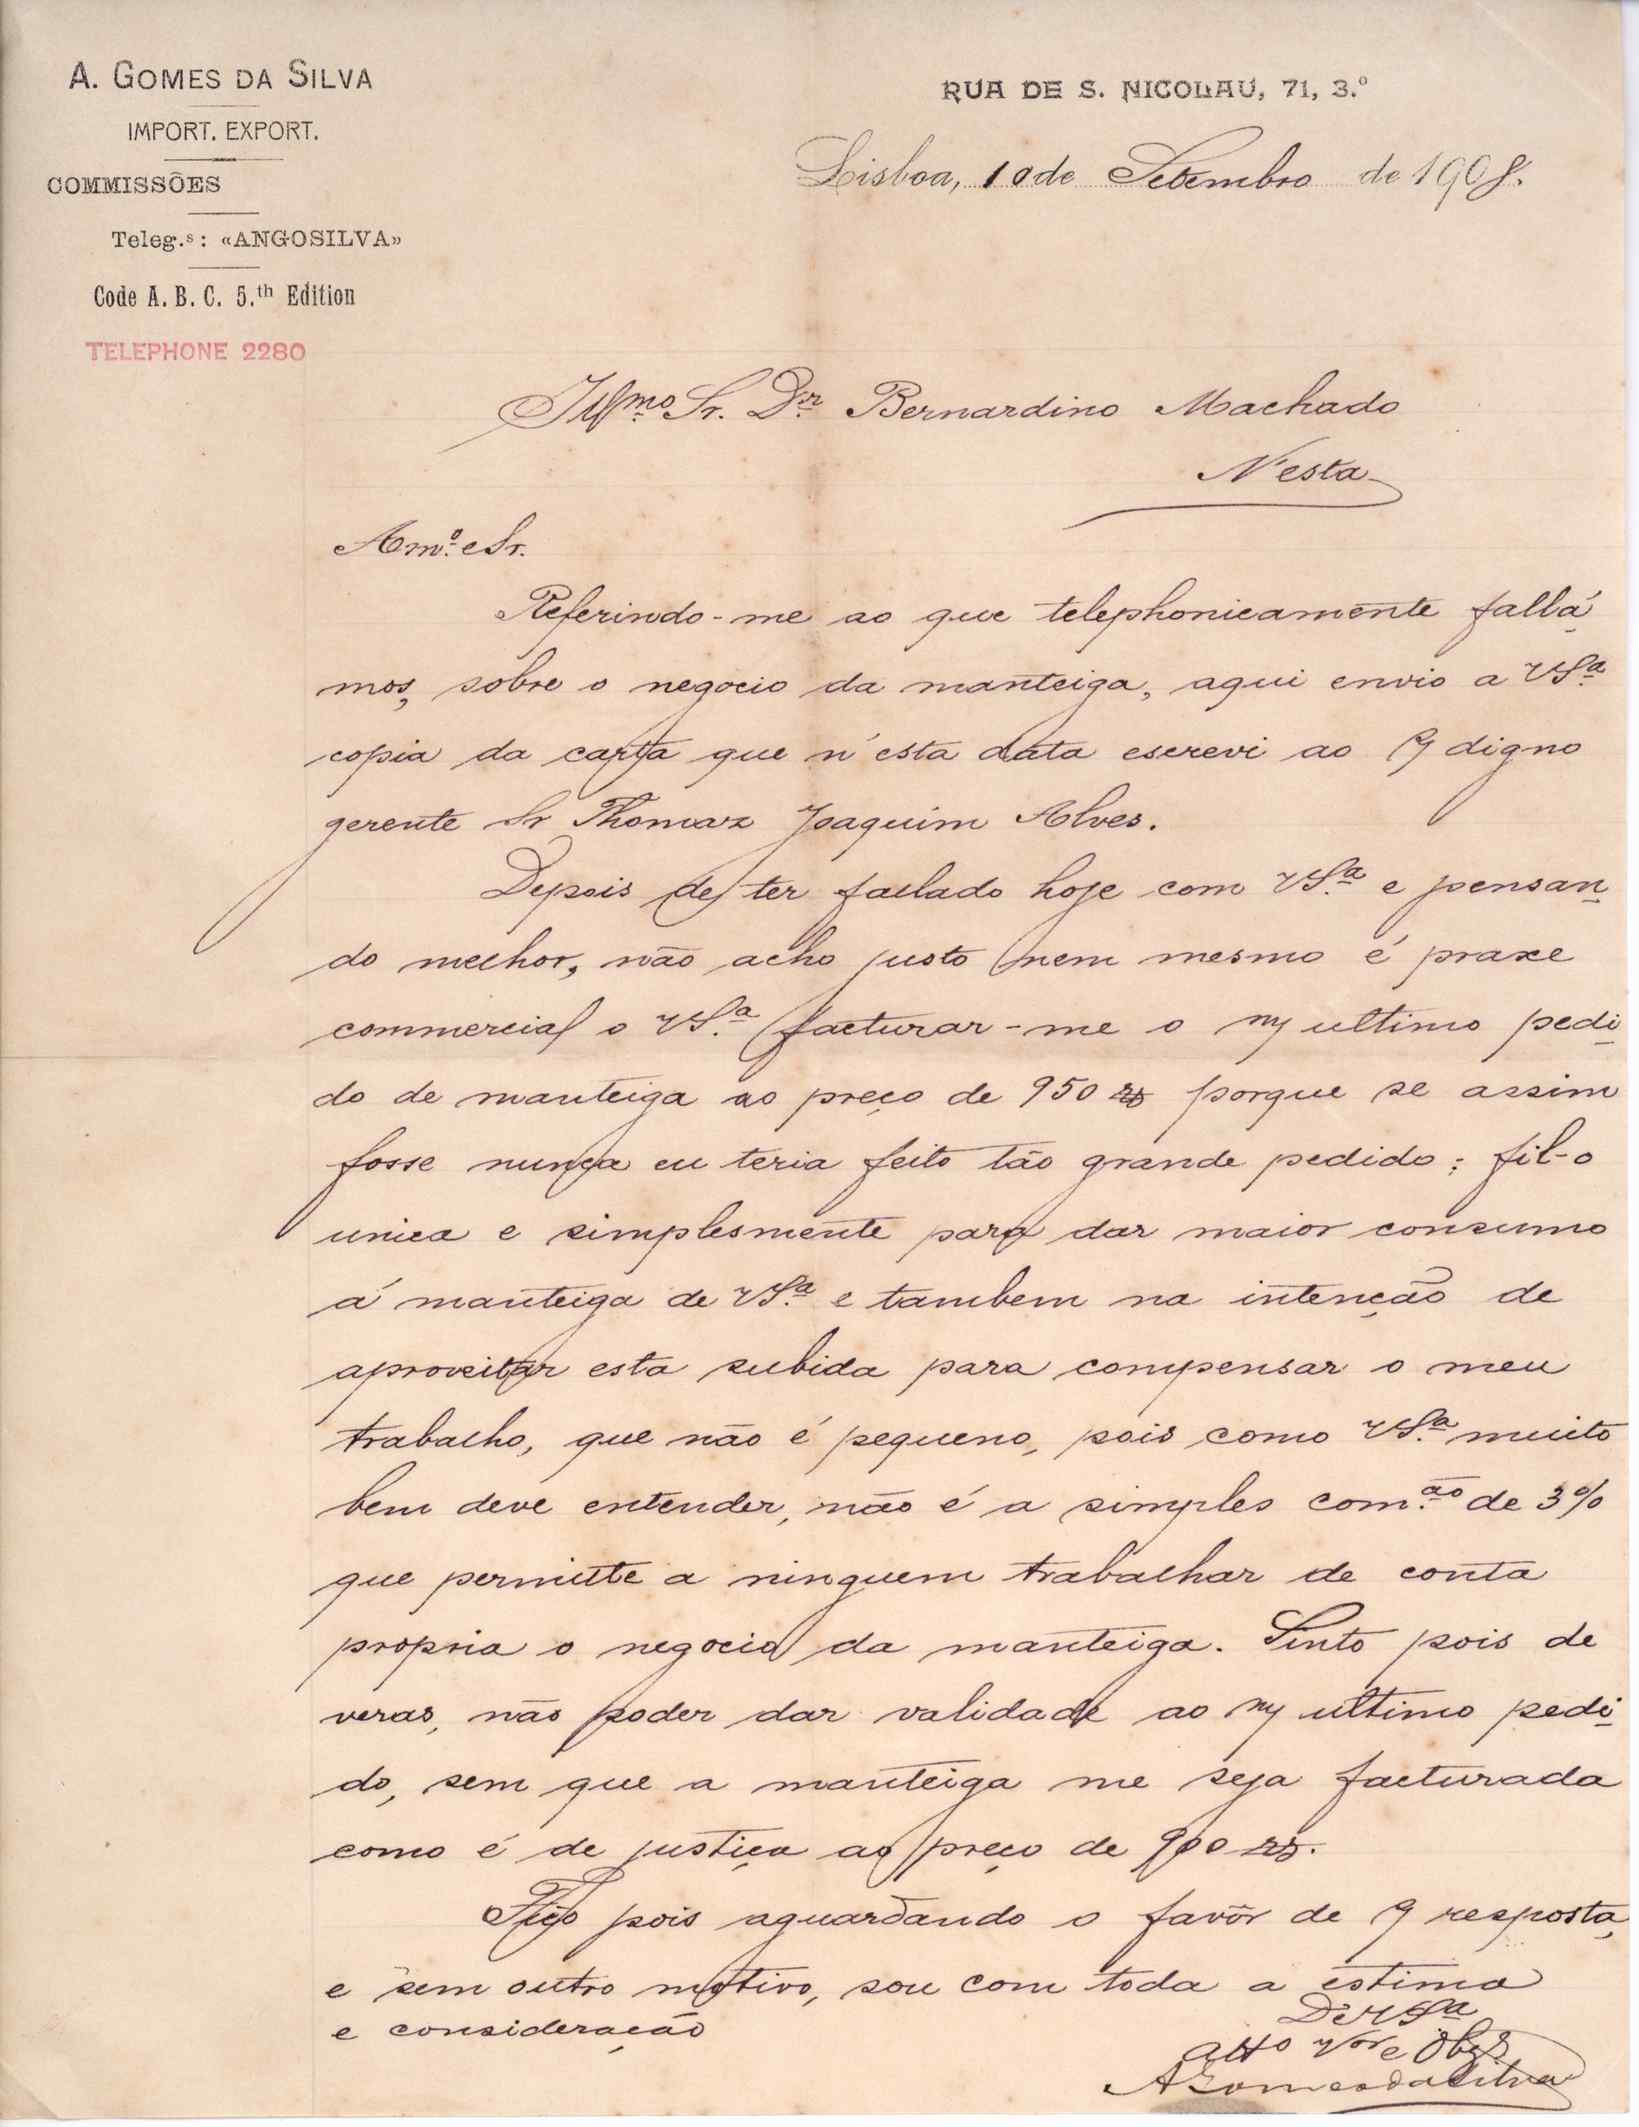 A. GOMES DA SILVA
IMPORT. EXPORT.
COMMISSÕES
Teleg.s: «ANGOSILVA»
Code A. B. C. 5.th Edition
TELEPHONE 2280
RUA DE S. NICOLAU, 71, 3.º
Lisboa, 10 de Setembro de 1908.
Illmo. Sr. Dr. Bernardino Machado
N'esta
Amº. e Sr.
Referindo-me ao que telephonicamente fallá
mos, sobre o negocio da manteiga, aqui envio a VSª.
copia da carta que n'esta data escrevi ao digno
gerente Sr Thomaz Joaquim Alves.
Depois de ter fallado hoje com VSª. e pensan
do melhor, não acho justo nem mesmo é praxe
commercial o VSª. facturar-me o m/ ultimo pedi
do de manteiga ao preço de 950 rs porque se assim
fosse nunca eu teria feito tão grande pedido; fil-o
unica e simplesmente para dar maior consumo
á manteiga de VSª. e tambem na intenção de
aproveitar esta subida para compensar o meu
trabalho, que não é pequeno, pois como VSª. muito
bem deve entender, não é a simples com.ão de 3%
que permitte a ninguem trabalhar de conta
propria o negocio da manteiga. Sinto pois de
veras, não poder dar validade ao m/ ultimo pedi
do, sem que a manteiga me seja facturada
como é de justiça ao preço de 900 rs.
Fico pois aguardando o favôr de resposta,
e sem outro motivo, sou com toda a estima
e consideração
De VSª
atto Vor e Obgo
A Gomes da Silva